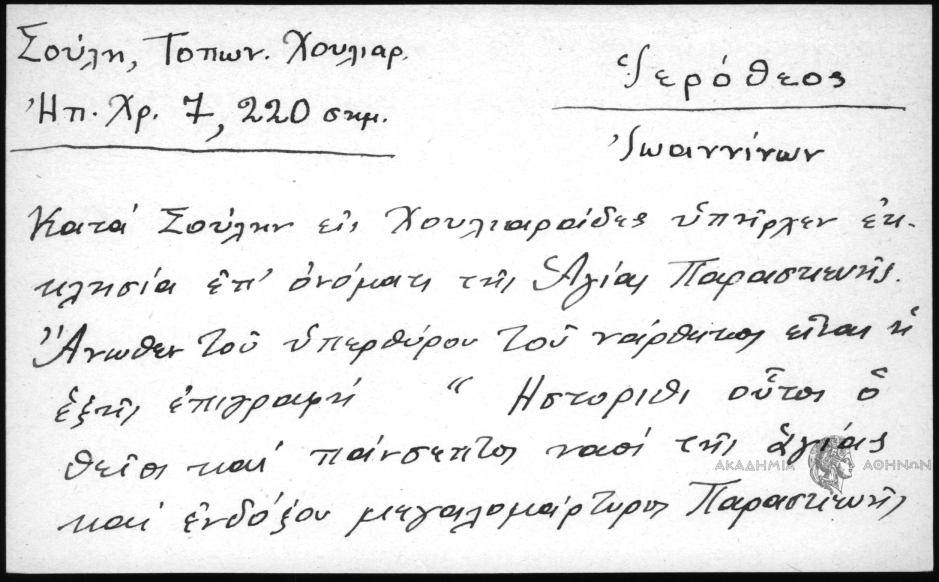 Σούλη, Τοπων. Χουλιαρ.
Ἠπ. Χρ. 7, 220 σημ.
Ἱερόθεος
Ἰωαννίνων
Κατά Σούλην εἰς Χουλιαράδες ὑπῆρχεν ἐκ-
κλησία ἐπ' ὀνόματι τῆς Ἁγίας Παρασκευῆς.
Ἄνωθεν τοῦ ὑπερθύρου τοῦ νάρθηκος εἶναι ἡ
ἑξῆς ἐπιγραφή " Ηστορίθι οὗτος ὁ
θεῖος καί πάνσεπτος ναός τῆς ἁγίας
καί ἐνδόξου μεγαλομάρτυρος Παρασκευῆς
ΑΚΑΔΗΜΙΑ ΑΘΗΝΩΝ